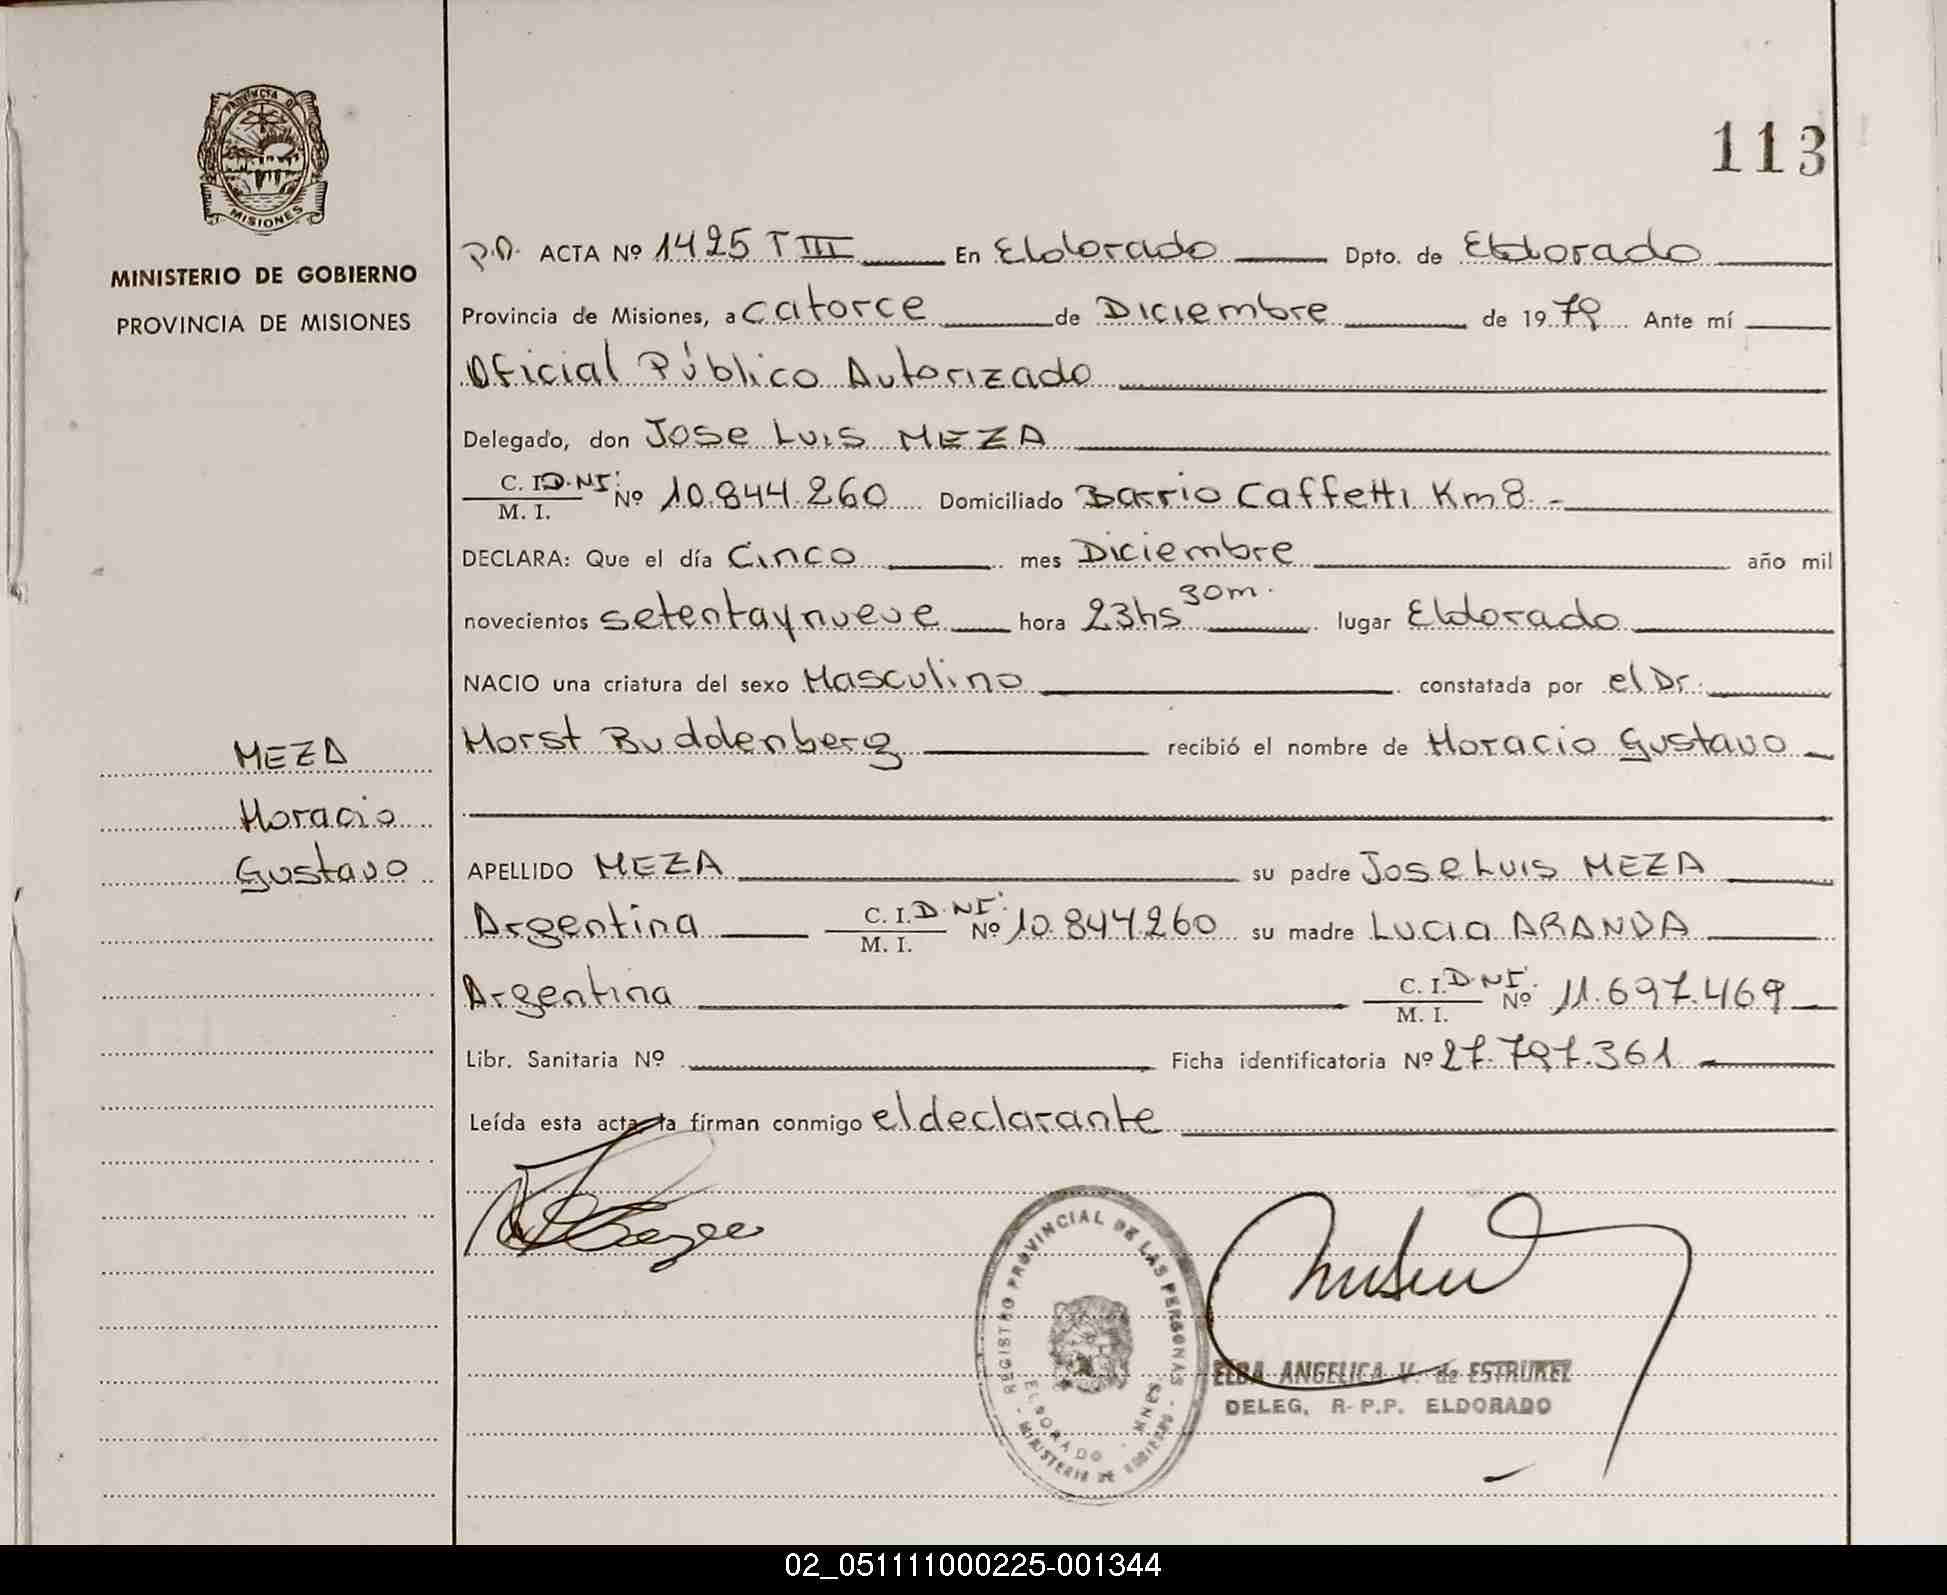 113
PROVINCIA DE
MISIONES
MINISTERIO DE GOBIERNO
PROVINCIA DE MISIONES
MEZA
Horacio
Gustavo
P.D. ACTA Nº 1425 T III En Eldorado Dpto. de Eldorado
Provincia de Misiones, a catorce de Diciembre de 1979 Ante mí
Oficial Público Autorizado
Delegado, don Jose Luis MEZA
C. I. D.N.I. Nº 10.844.260 Domiciliado Barrio Caffetti Km 8.-
M. I.
DECLARA: Que el día Cinco mes Diciembre año mil
novecientos setentaynueve hora 23hs 30m. lugar Eldorado
NACIO una criatura del sexo Masculino constatada por el Dr.
Horst Buddenberg recibió el nombre de Horacio Gustavo
APELLIDO MEZA su padre Jose Luis MEZA
Argentina C. I. D.N.I. Nº 10.844.260 su madre Lucia ARANDA
M. I.
Argentina C. I. D.N.I. Nº 11.697.469
M. I.
Libr. Sanitaria Nº Ficha identificatoria Nº 27.797.361
Leída esta acta la firman conmigo el declarante
REGISTRO PROVINCIAL DE LAS PERSONAS
ELDORADO - MNES.
- MINISTERIO DE GOBIERNO -
ELBA ANGELICA V. de ESTRUKEL
DELEG. R-P.P. ELDORADO
02_051111000225-001344